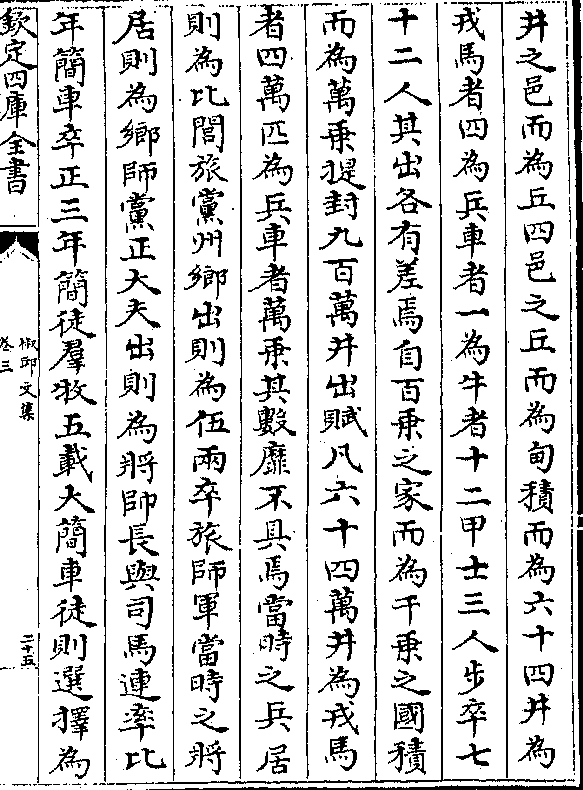 井之邑而為丘四邑之丘而為甸積而為六十四井為
戎馬者四為兵車者一為牛者十二甲士三人步卒七
十二人其出各有差焉自百乗之家而為千乗之國積
而為萬乗提封九百萬井出賦凡六十四萬井為戎馬
者四萬匹為兵車者萬乗其數靡不具焉當時之兵居
則為比閭旅黨州鄉出則為伍兩卒旅師軍當時之將
居則為鄉師黨正大夫出則為將帥長與司馬連率比
年簡車卒正三年簡徒羣牧五載大簡車徒則選擇為
欽定四庫全書
椒邱文集
卷三
二十五